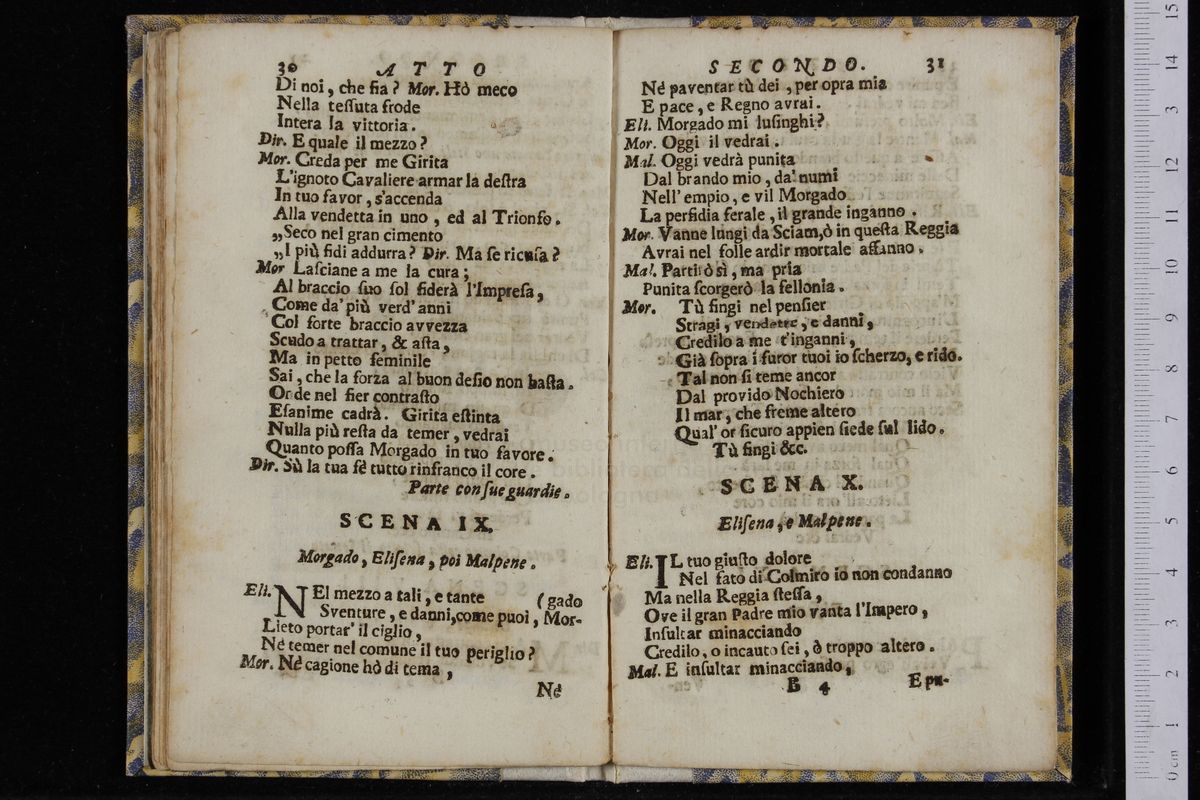 30 ATTO
Di noi, che fia? Mor. Hò meco
Nella teſſuta frode
Intera la vittoria.
Dir. E quale il mezzo?
Mor. Creda per me Girita
L'ignoto Cavaliere armar la deſtra
In tuo favor, s'accenda
Alla vendetta in uno, ed al Trionfo.
„Seco nel gran cimento
„I più fidi addurra? Dir. Ma ſe ricuſa?
Mor Laſciane a me la cura;
Al braccio ſuo ſol fiderà l'Impreſa,
Come da' più verd' anni
Col forte braccio avvezza
Scudo a trattar, & aſta,
Ma in petto feminile
Sai, che la forza al buon deſio non baſta.
Onde nel fier contraſto
Eſanime cadrà. Girita eſtinta
Nulla più reſta da temer, vedrai
Quanto poſſa Morgado in tuo favore.
Dir. Sù la tua fè tutto rinfranco il core.
Parte con ſue guardie.
SCENA IX.
Morgado, Eliſena, poi Malpene.
Eli. NEl mezzo a tali, e tante (gado
Sventure, e danni, come puoi, Mor-
Lieto portar' il ciglio,
Nè temer nel comune il tuo periglio?
Mor. Nè cagione hò di tema,
Nè
SECONDO. 31
Nè paventar tù dei, per opra mia
E pace, e Regno avrai.
Eli. Morgado mi luſinghi?
Mor. Oggi il vedrai.
Mal. Oggi vedrà punita
Dal brando mio, da' numi
Nell' empio, e vil Morgado
La perfidia ferale, il grande inganno.
Mor. Vanne lungi da Sciam, ò in queſta Reggia
Avrai nel folle ardir mortale affanno.
Mal. Partirò sì, ma pria
Punita ſcorgerò la fellonia.
Mor. Tù fingi nel penſier
Stragi, vendette, e danni,
Credilo a me t'inganni,
Già ſopra i furor tuoi io ſcherzo, e rido.
Tal non ſi teme ancor
Dal provido Nochiero
Il mar, che freme altero
Qual' or ſicuro appien ſiede ſul lido.
Tù fingi &c.
SCENA X.
Eliſena, e Malpene.
Eli. IL tuo giuſto dolore
Nel fato di Colmiro io non condanno
Ma nella Reggia ſteſſa,
Ove il gran Padre mio vanta l'Impero,
Inſultar minacciando
Credilo, o incauto ſei, ò troppo altero.
Mal. E inſultar minacciando,
B 4 E pu-